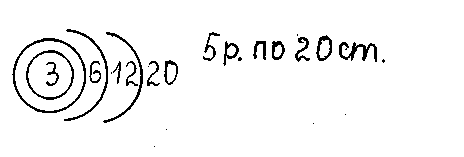 3 6 12 20 5 р. по 20 ст.